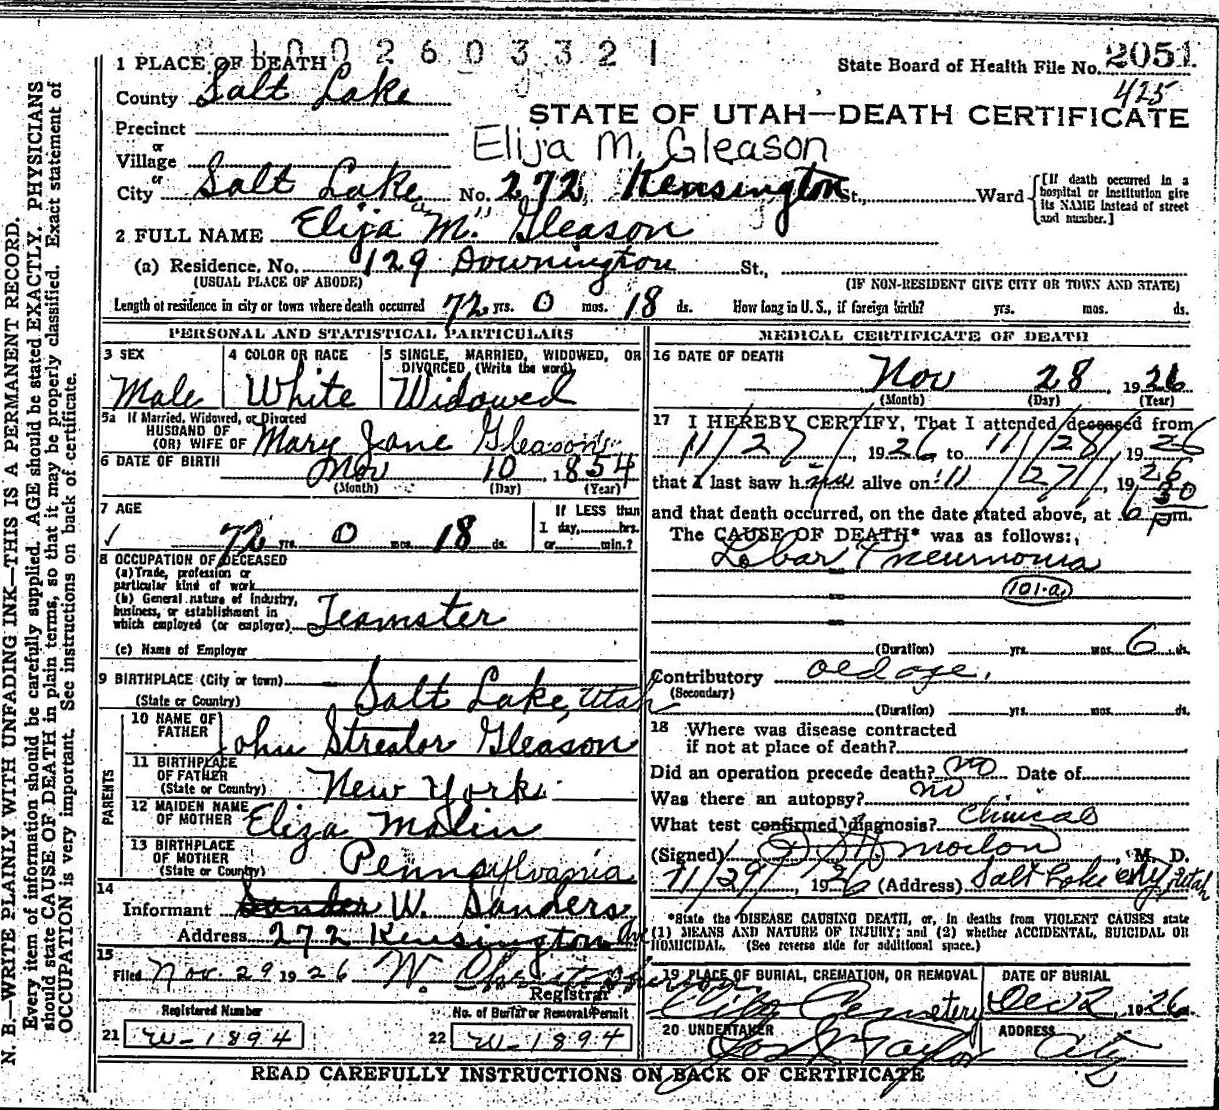 1 0 0 2 6 0 3 3 2 1
1 PLACE OF DEATH
State Board of Health File No. 2051
425
County Salt Lake
STATE OF UTAH—DEATH CERTIFICATE
Precinct
or
Village
Elija M. Gleason
or
City Salt Lake No. 272 Kensington St., Ward
[If death occurred in a hospital or institution give its NAME instead of street and number.]
2 FULL NAME Elija "M." Gleason
(a) Residence. No. 129 Downington St.,
(USUAL PLACE OF ABODE) (IF NON-RESIDENT GIVE CITY OR TOWN AND STATE)
Length of residence in city or town where death occurred 72 yrs. 0 mos. 18 ds. How long in U. S., if foreign birth? yrs. mos. ds.
PERSONAL AND STATISTICAL PARTICULARS
3 SEX 4 COLOR OR RACE 5 SINGLE, MARRIED, WIDOWED, OR DIVORCED (Write the word)
Male White Widowed
5a If Married, Widowed, or Divorced
HUSBAND OF
(OR) WIFE OF Mary Jane Gleason
6 DATE OF BIRTH Nov 10, 1854
(Month) (Day) (Year)
7 AGE
If LESS than
1 day, hrs.
or min.?
72 yrs. 0 mos. 18 ds.
8 OCCUPATION OF DECEASED
(a) Trade, profession or
particular kind of work
(b) General nature of industry,
business, or establishment in
which employed (or employer) Teamster
(c) Name of Employer
9 BIRTHPLACE (City or town)
(State or Country) Salt Lake, Utah
PARENTS
10 NAME OF
FATHER John Streator Gleason
11 BIRTHPLACE
OF FATHER
(State or Country) New York
12 MAIDEN NAME
OF MOTHER Eliza Malin
13 BIRTHPLACE
OF MOTHER
(State or Country) Pennsylvania
14
Informant W. Sanders
Address 272 Kensington Av
15
Filed Nov. 29 1926 W.
Registrar
Registered Number No. of Burial or Removal Permit
21 W-1894 22 W-1894
MEDICAL CERTIFICATE OF DEATH
16 DATE OF DEATH
Nov 28, 1926
(Month) (Day) (Year)
17 I HEREBY CERTIFY, That I attended deceased from
11/27, 1926 to 11/28/, 1926
that I last saw him alive on 11/27/, 1926
and that death occurred, on the date stated above, at 6 30 p m.
The CAUSE OF DEATH* was as follows:
Lobar Pneumonia
101-a
(Duration) yrs. mos. 6 ds.
Contributory old age.
(Secondary)
(Duration) yrs. mos. ds.
18 Where was disease contracted
if not at place of death?
Did an operation precede death? no Date of
Was there an autopsy? no
What test confirmed diagnosis? Clinical
(Signed) , M. D.
11/29/, 1926 (Address) Salt Lake City Utah
*State the DISEASE CAUSING DEATH, or, in deaths from VIOLENT CAUSES state
(1) MEANS AND NATURE OF INJURY; and (2) whether ACCIDENTAL, SUICIDAL OR
HOMICIDAL. (See reverse side for additional space.)
19 PLACE OF BURIAL, CREMATION, OR REMOVAL DATE OF BURIAL
City Cemetery Dec 2, 1926
20 UNDERTAKER ADDRESS
Jos Taylor City
READ CAREFULLY INSTRUCTIONS ON BACK OF CERTIFICATE
N. B.—WRITE PLAINLY WITH UNFADING INK—THIS IS A PERMANENT RECORD.
Every item of information should be carefully supplied. AGE should be stated EXACTLY. PHYSICIANS
should state CAUSE OF DEATH in plain terms, so that it may be properly classified. Exact statement of
OCCUPATION is very important. See instructions on back of certificate.